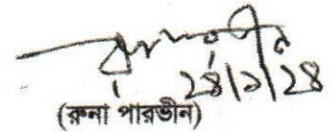 ২৪/১/২৪
(রুনা পারভীন)